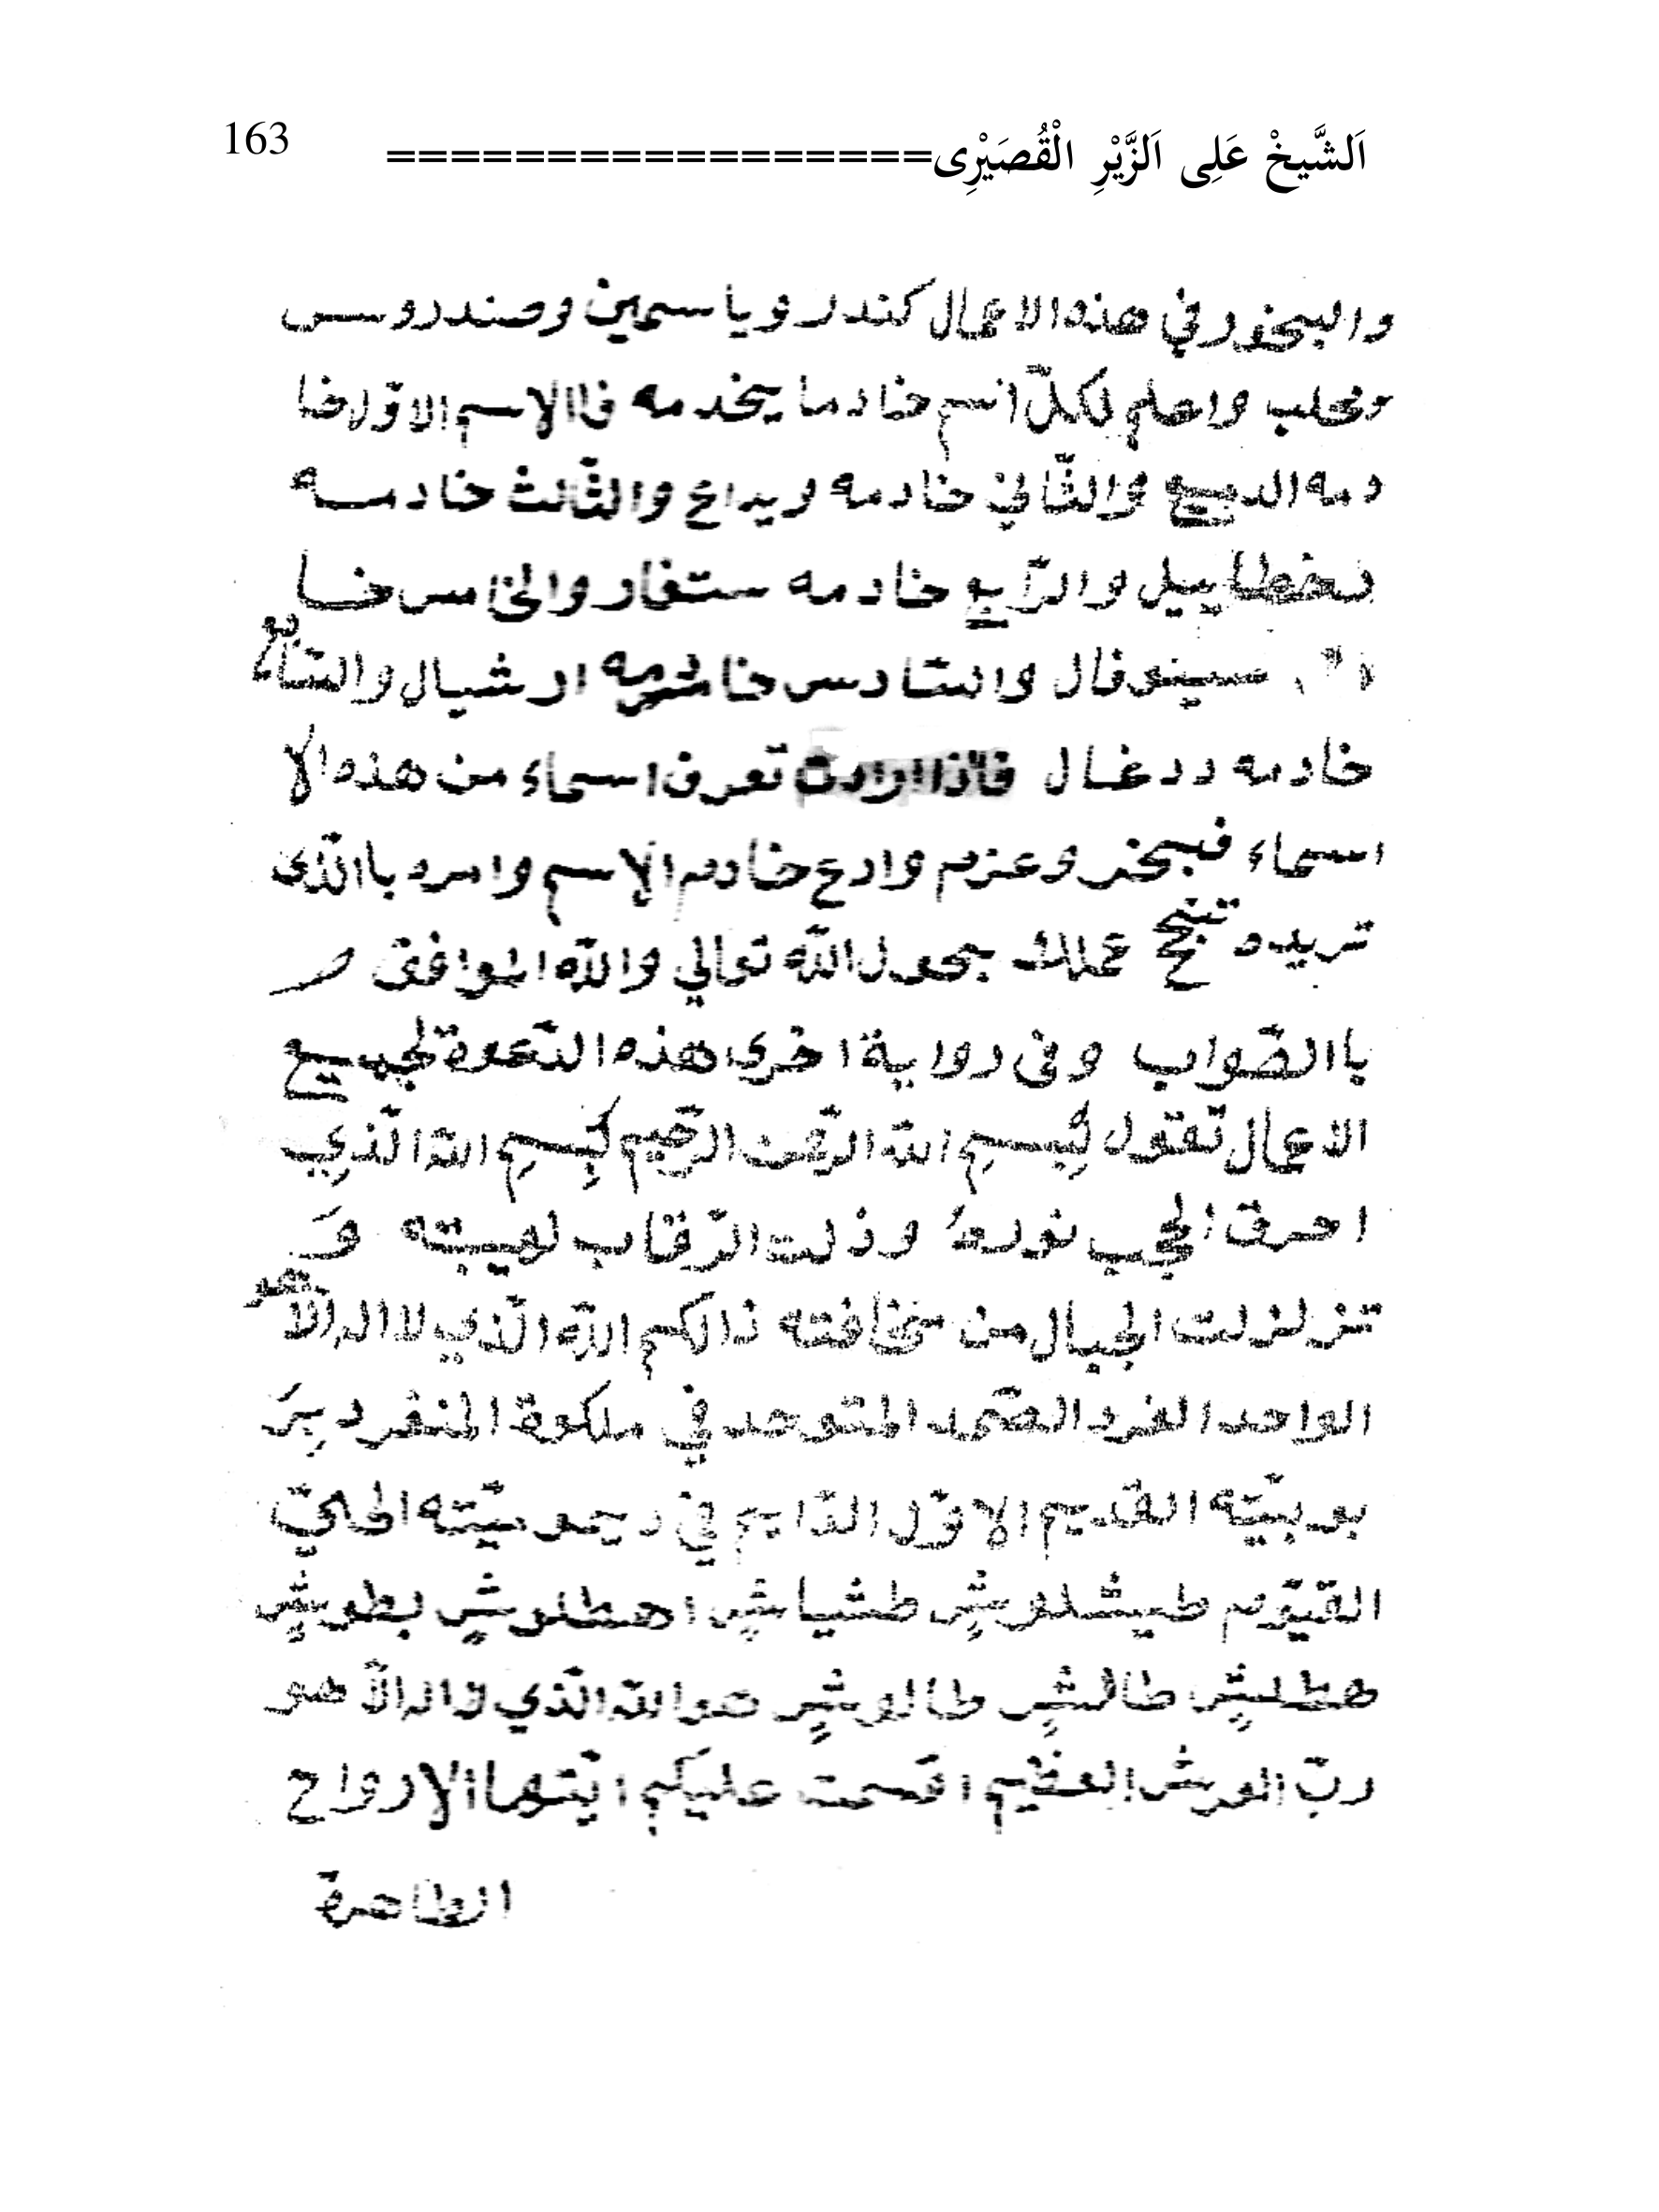 اَلشَّيخْ عَلِى اَلزَّيْرِ الْقُصَيْرِى=================
163
والبخور في هذه الاعمال كندر وياسمين وصندروس
ومحلب واعلم لكلّ اسم خادما يخدمه فاالإسم الاوّل خا
دمه والثّاني خادمه ويداع والثّالث خادمه
والرّابع خادمه ستفار والخامس خا
والسّادس خادمه ارشيال والسّابع
خادمه ددغال فاذا ارادت تعرف اسماء من هذه الا
اسماء فبخر وعزم وادع خادم الإسم وامره باالذّى
تريده تنجح عملك بحول اللّه تعالي واللّه الموافق
باالصّواب وفى رواية اخرى هذه الدّعوة لجميع
الاعمال تقول بِسمِ اللّه الرّحمن الرّحيم بِسمِ اللّه الّذي
احرق الحجب نوره وذلت الرّقاب لهيبته وَ
تزلزلت الجبال من مخافته ذالكم اللّه الّذي لا اله الّا هو
الواحد الفرد الصّمد المتوحد في ملكوة المنفرد بِرَ
بوبيّته القديم الاوّل الدّايم في ديموميّته الحيّ
القيّوم طيشلوشٍ طشياشٍ اهطلوشٍ بطوشٍ
هطلشٍ طالشٍ طالوشٍ هو اللّه الّذي لا اله الّا هو
ربّ العرش العظيم اقسمت عليكم ايّتها الارواح
الطاهرة